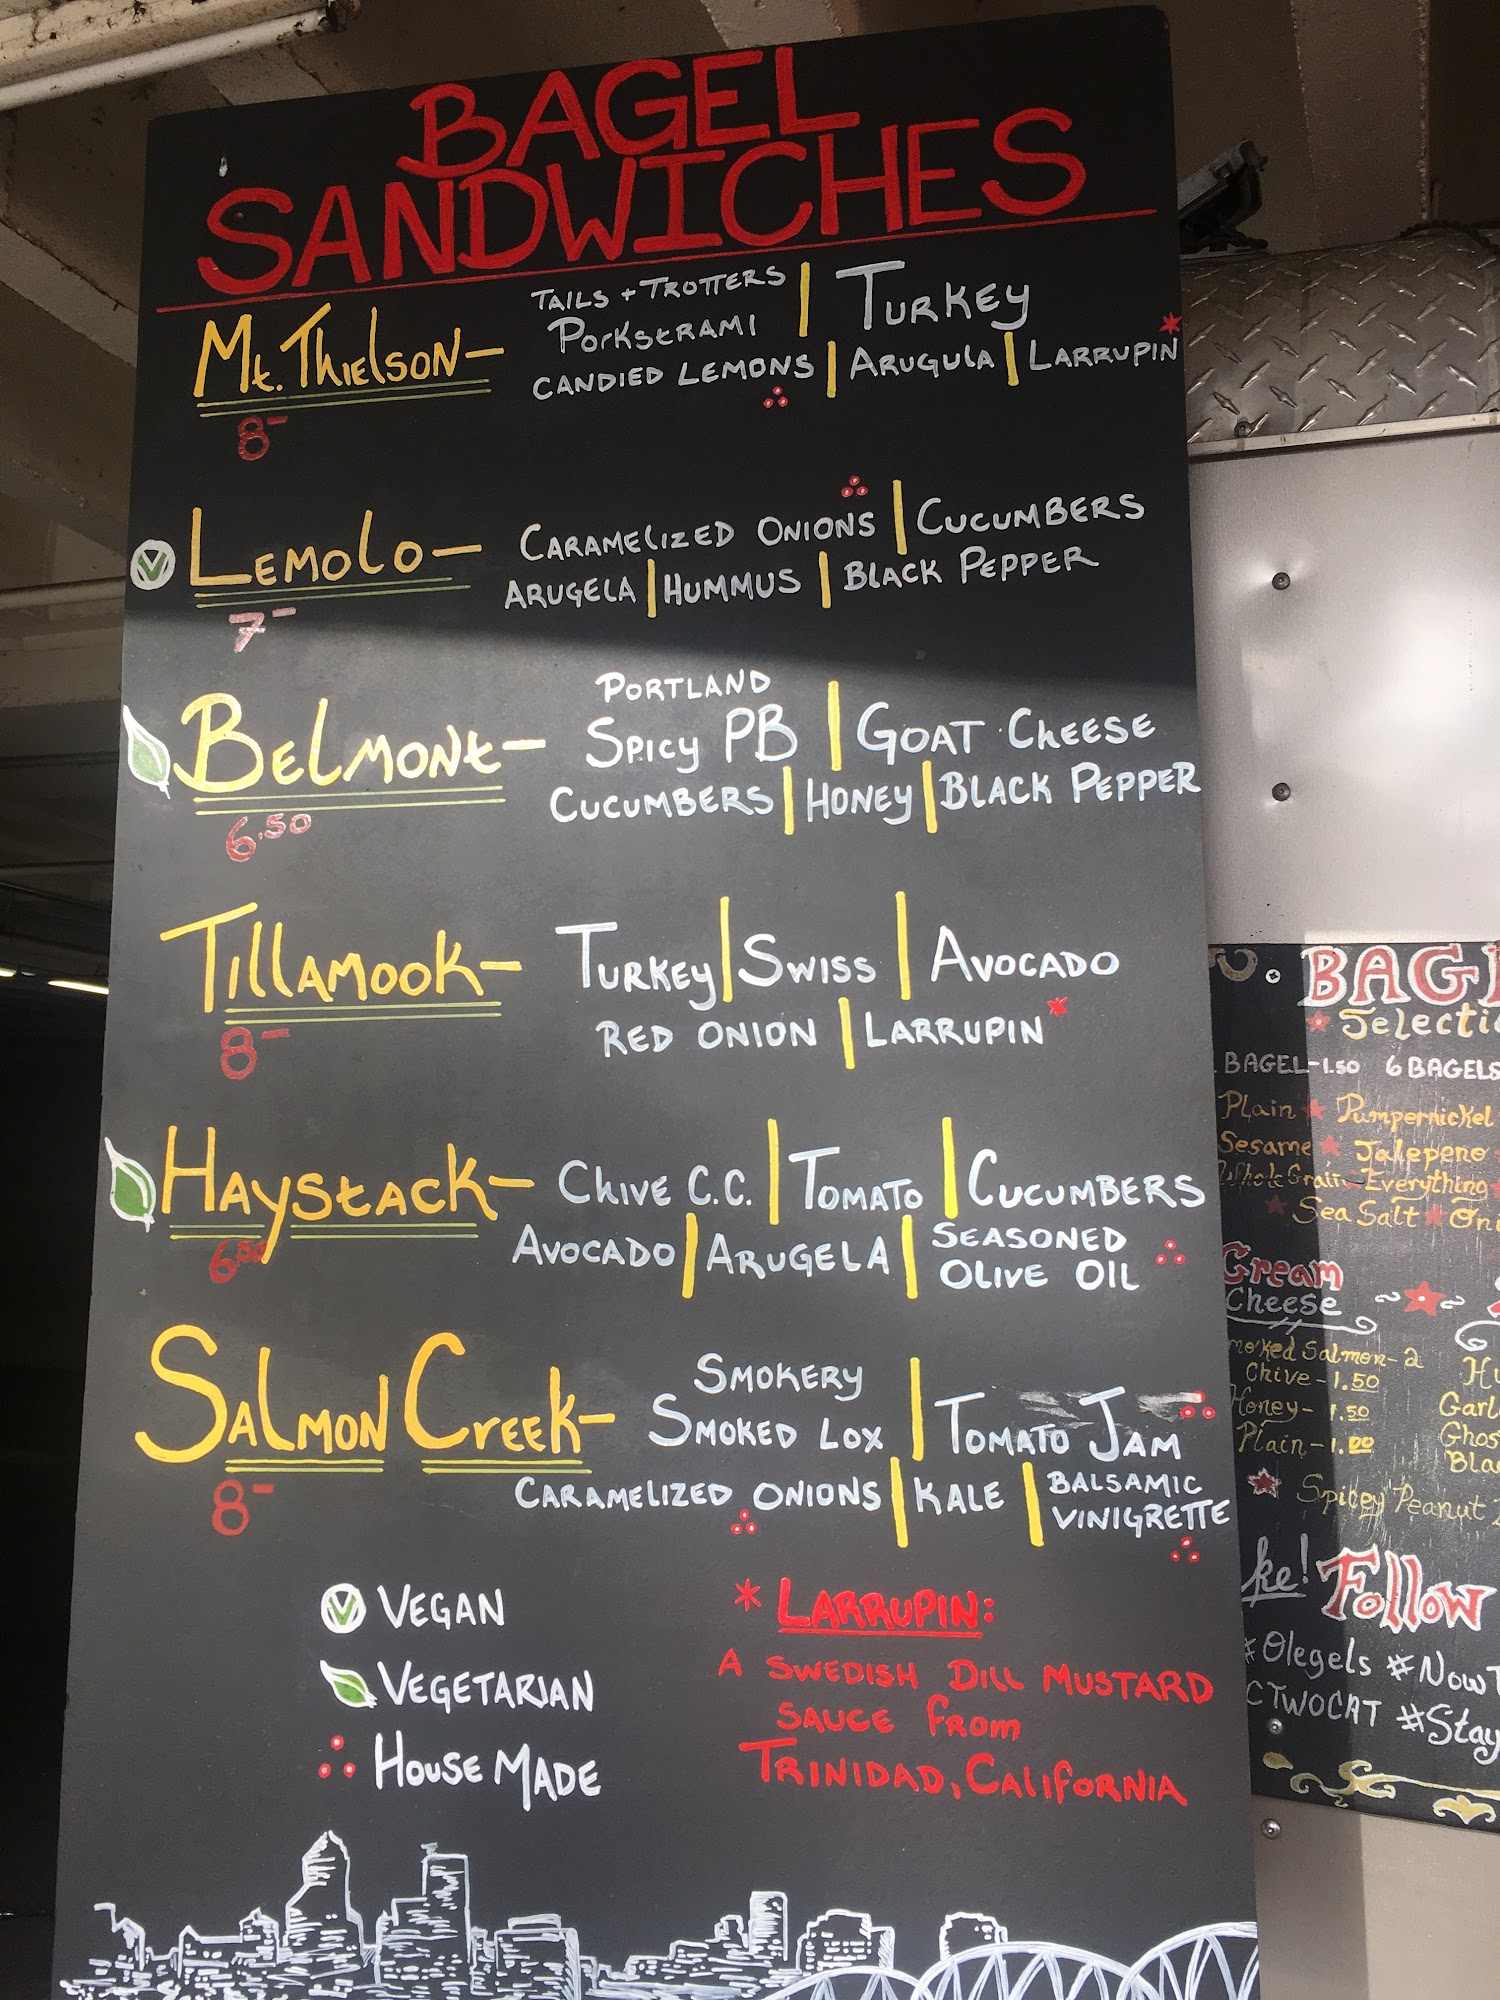 BAGEL
SANDWICHES
Mt. Thielson —
TAILS + TROTTERS
Porkstrami | Turkey
CANDIED LEMONS | ARUGULA | LARRUPIN *
8-
V Lemolo —
CARAMELIZED ONIONS | CUCUMBERS
ARUGELA | HUMMUS | BLACK PEPPER
7-
Belmont —
PORTLAND
Spicy PB | GOAT CHEESE
CUCUMBERS | HONEY | BLACK PEPPER
6.50
Tillamook —
TURKEY | SWISS | AVOCADO
RED ONION | LARRUPIN *
8-
Haystack —
CHIVE C.C. | TOMATO | CUCUMBERS
AVOCADO | ARUGELA | SEASONED
OLIVE OIL
6.50
Salmon Creek —
SMOKERY
SMOKED LOX | TOMATO JAM
CARAMELIZED ONIONS | KALE | BALSAMIC
VINIGRETTE
8-
V VEGAN
VEGETARIAN
HOUSE MADE
* LARRUPIN:
A SWEDISH DILL MUSTARD
SAUCE from
TRINIDAD, CALIFORNIA
BAG
Selecti
BAGEL-1.50 6 BAGELS
Plain * Pumpernickel
Sesame * Jalepeno
Whole Grain Everything
Sea Salt * On
Cream
Cheese
moked Salmon-2
Chive-1.50
Honey-1.50
Plain-1.00
Garl
Ghos
Bla
Spicey Peanut
ke! Follow
#Olegels #Now
CTWOCAT #Stay